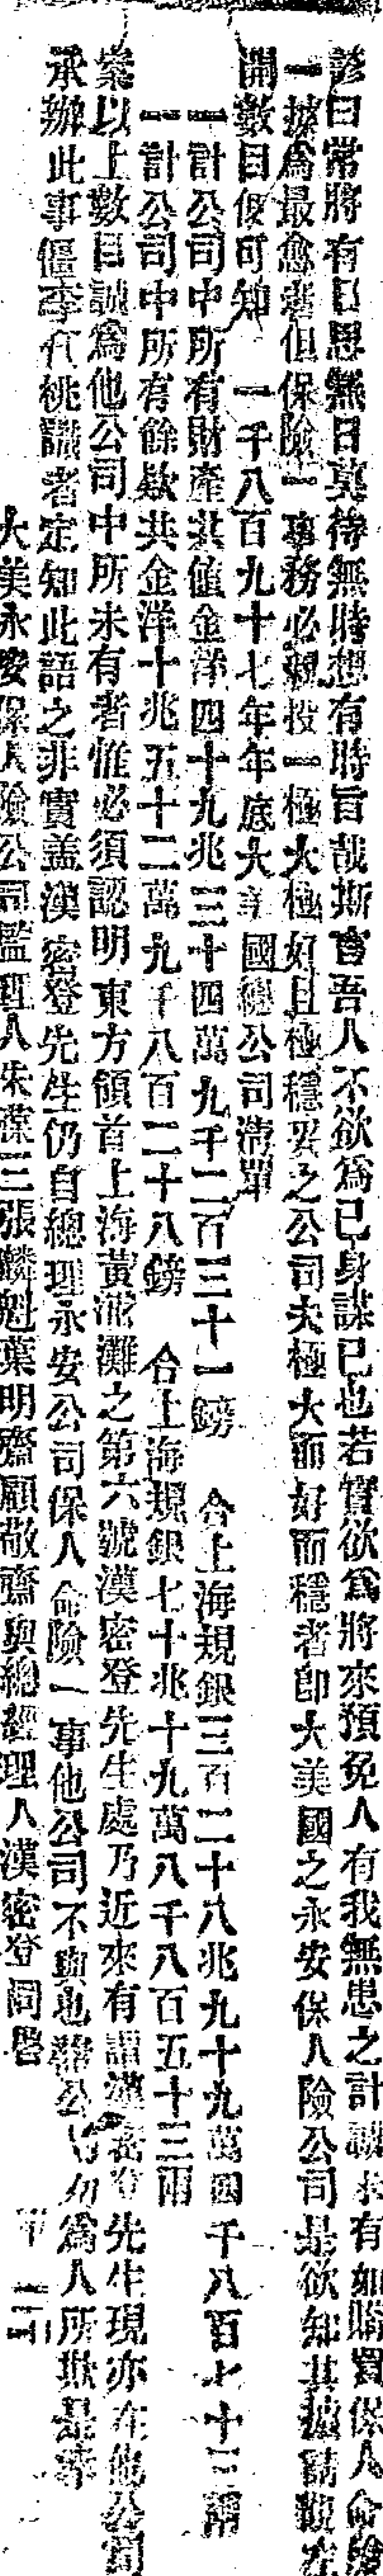 諺曰常將有日思無日莫待無時想有時旨哉斯言吾人不欲爲已身謀已也若實欲爲將來預免人有我無患之計誠未有如購買保人命險
一據爲最愈者但保險一事務必親投一極大極好且極穩妥之公司夫極大而好而穩者卽大美國之永安保人險公司是欲知其據請觀左
開數目便可知　一千八百九十七年年底大美國總公司淸單
一計公司中所有財產共値金洋四十九兆三十四萬九千二百三十一鎊　合上海規銀三百二十八兆九十九萬四千八百七十三兩
一計公司中所有餘欵共金洋十兆五十二萬九千八百二十八鎊　合上海規銀七十兆十九萬八千八百五十三兩
案以上數目誠爲他公司中所未有者惟必須認明東方領首上海黃浦灘之第六號漢密登先生處乃近來有謂漢密登先生現亦在他公司
承辦此事僵李代桃識者定知此語之非實蓋漢密登先生仍自總理永安公司保人命險一事他公司不與也諸公切勿爲人所欺是幸
大美永安保人險公司監理人朱葆三張麟魁葉明齋顧敬齋與總經理人漢密登同啓